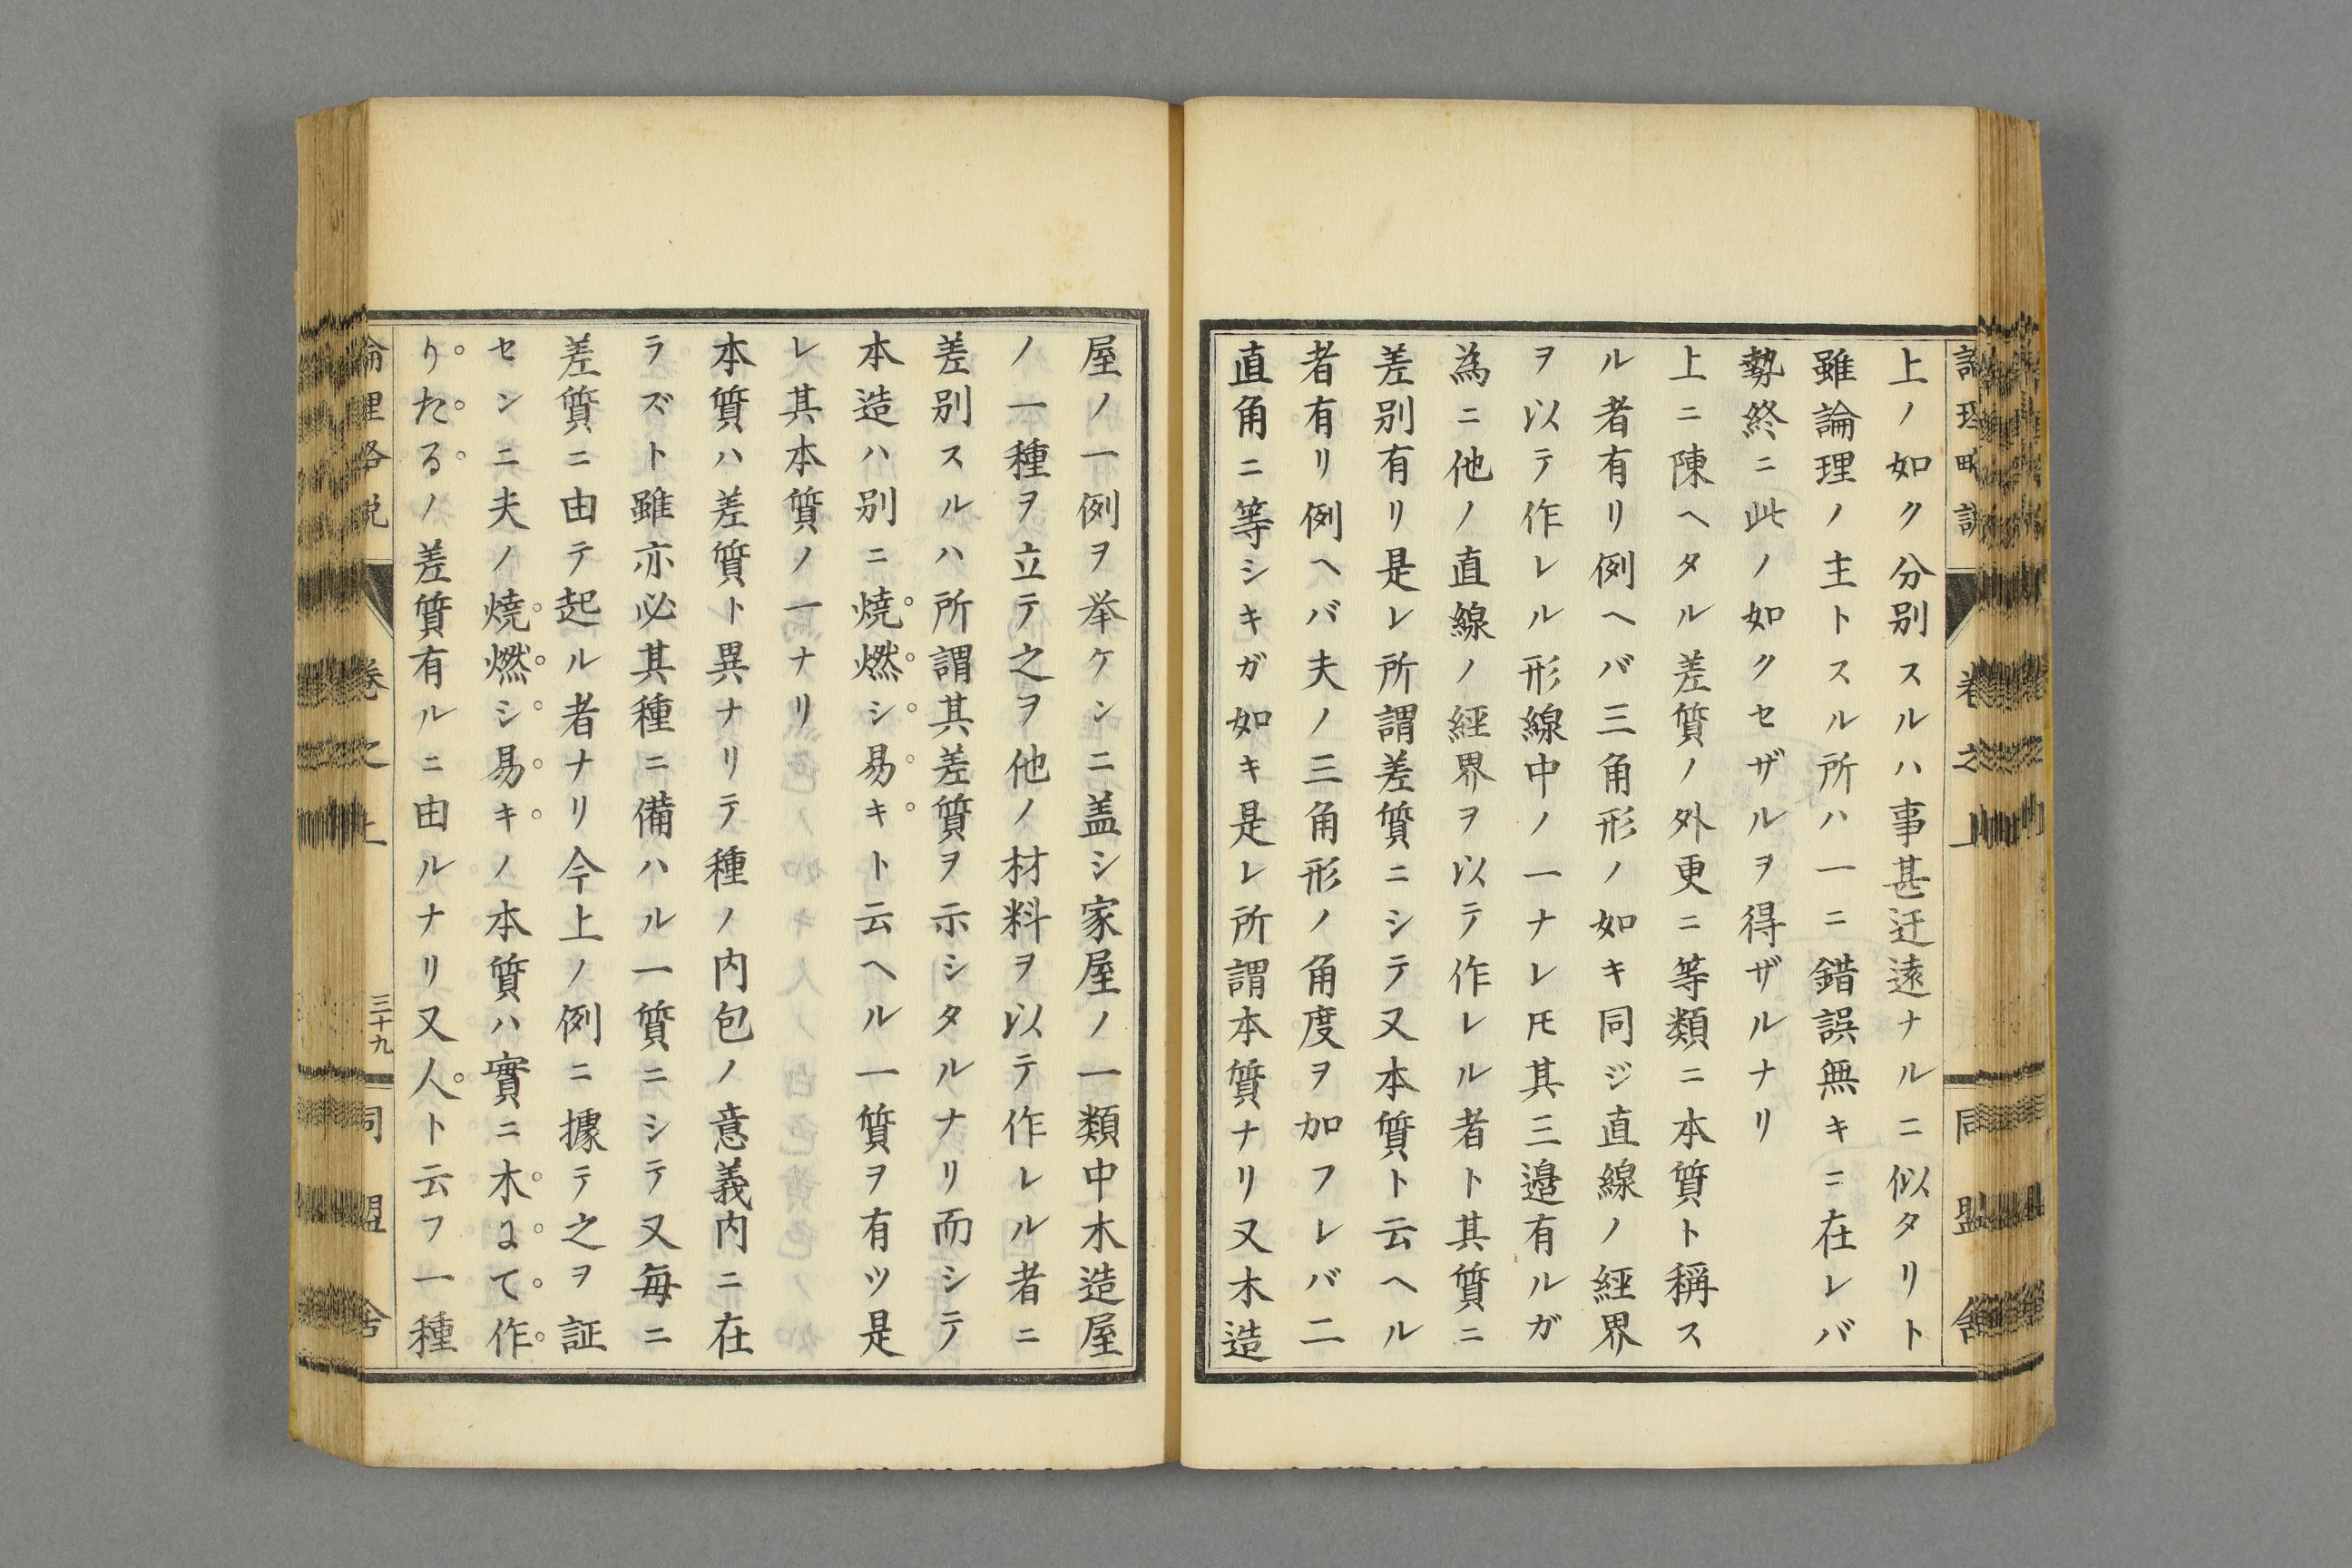 上ノ如ク分別スルハ事甚迂遠ナルニ似タリト
雖論理ノ主トスル所ハ一ニ錯誤無キニ在レバ
勢終ニ此ノ如クセザルヲ得ザルナリ
上ニ陳ヘタル差質ノ外更ニ等類ニ本質ト稱ス
ル者有リ例ヘバ三角形ノ如キ同ジ直線ノ經界
ヲ以テ作レル形線中ノ一ナレ𪜈其三邉有ルガ
為ニ他ノ直線ノ經界ヲ以テ作レル者ト其質ニ
差別有リ是レ所謂差質ニシテ又本質ト云ヘル
者有リ例ヘバ夫ノ三角形ノ角度ヲ加フレバ二
直角ニ等シキガ如キ是レ所謂本質ナリ又木造
屋ノ一例ヲ挙ケンニ盖シ家屋ノ一類中木造屋
ノ一種ヲ立テ之ヲ他ノ材料ヲ以テ作レル者ニ
差別スルハ所謂其差質ヲ示シタルナリ而シテ
本造ハ別ニ焼燃シ易キト云ヘル一質ヲ有ツ是
レ其本質ノ一ナリ
本質ハ差質ト異ナリテ種ノ内包ノ意義内ニ在
ラズト雖亦必其種ニ備ハル一質ニシテ又毎ニ
差質ニ由テ起ル者ナリ今上ノ例ニ據テ之ヲ証
センニ夫ノ焼燃シ易キノ本質ハ實ニ木にて作
りたるノ差質有ルニ由ルナリ又人ト云フ一種
論理略説
卷之上
三十九
同盟舎